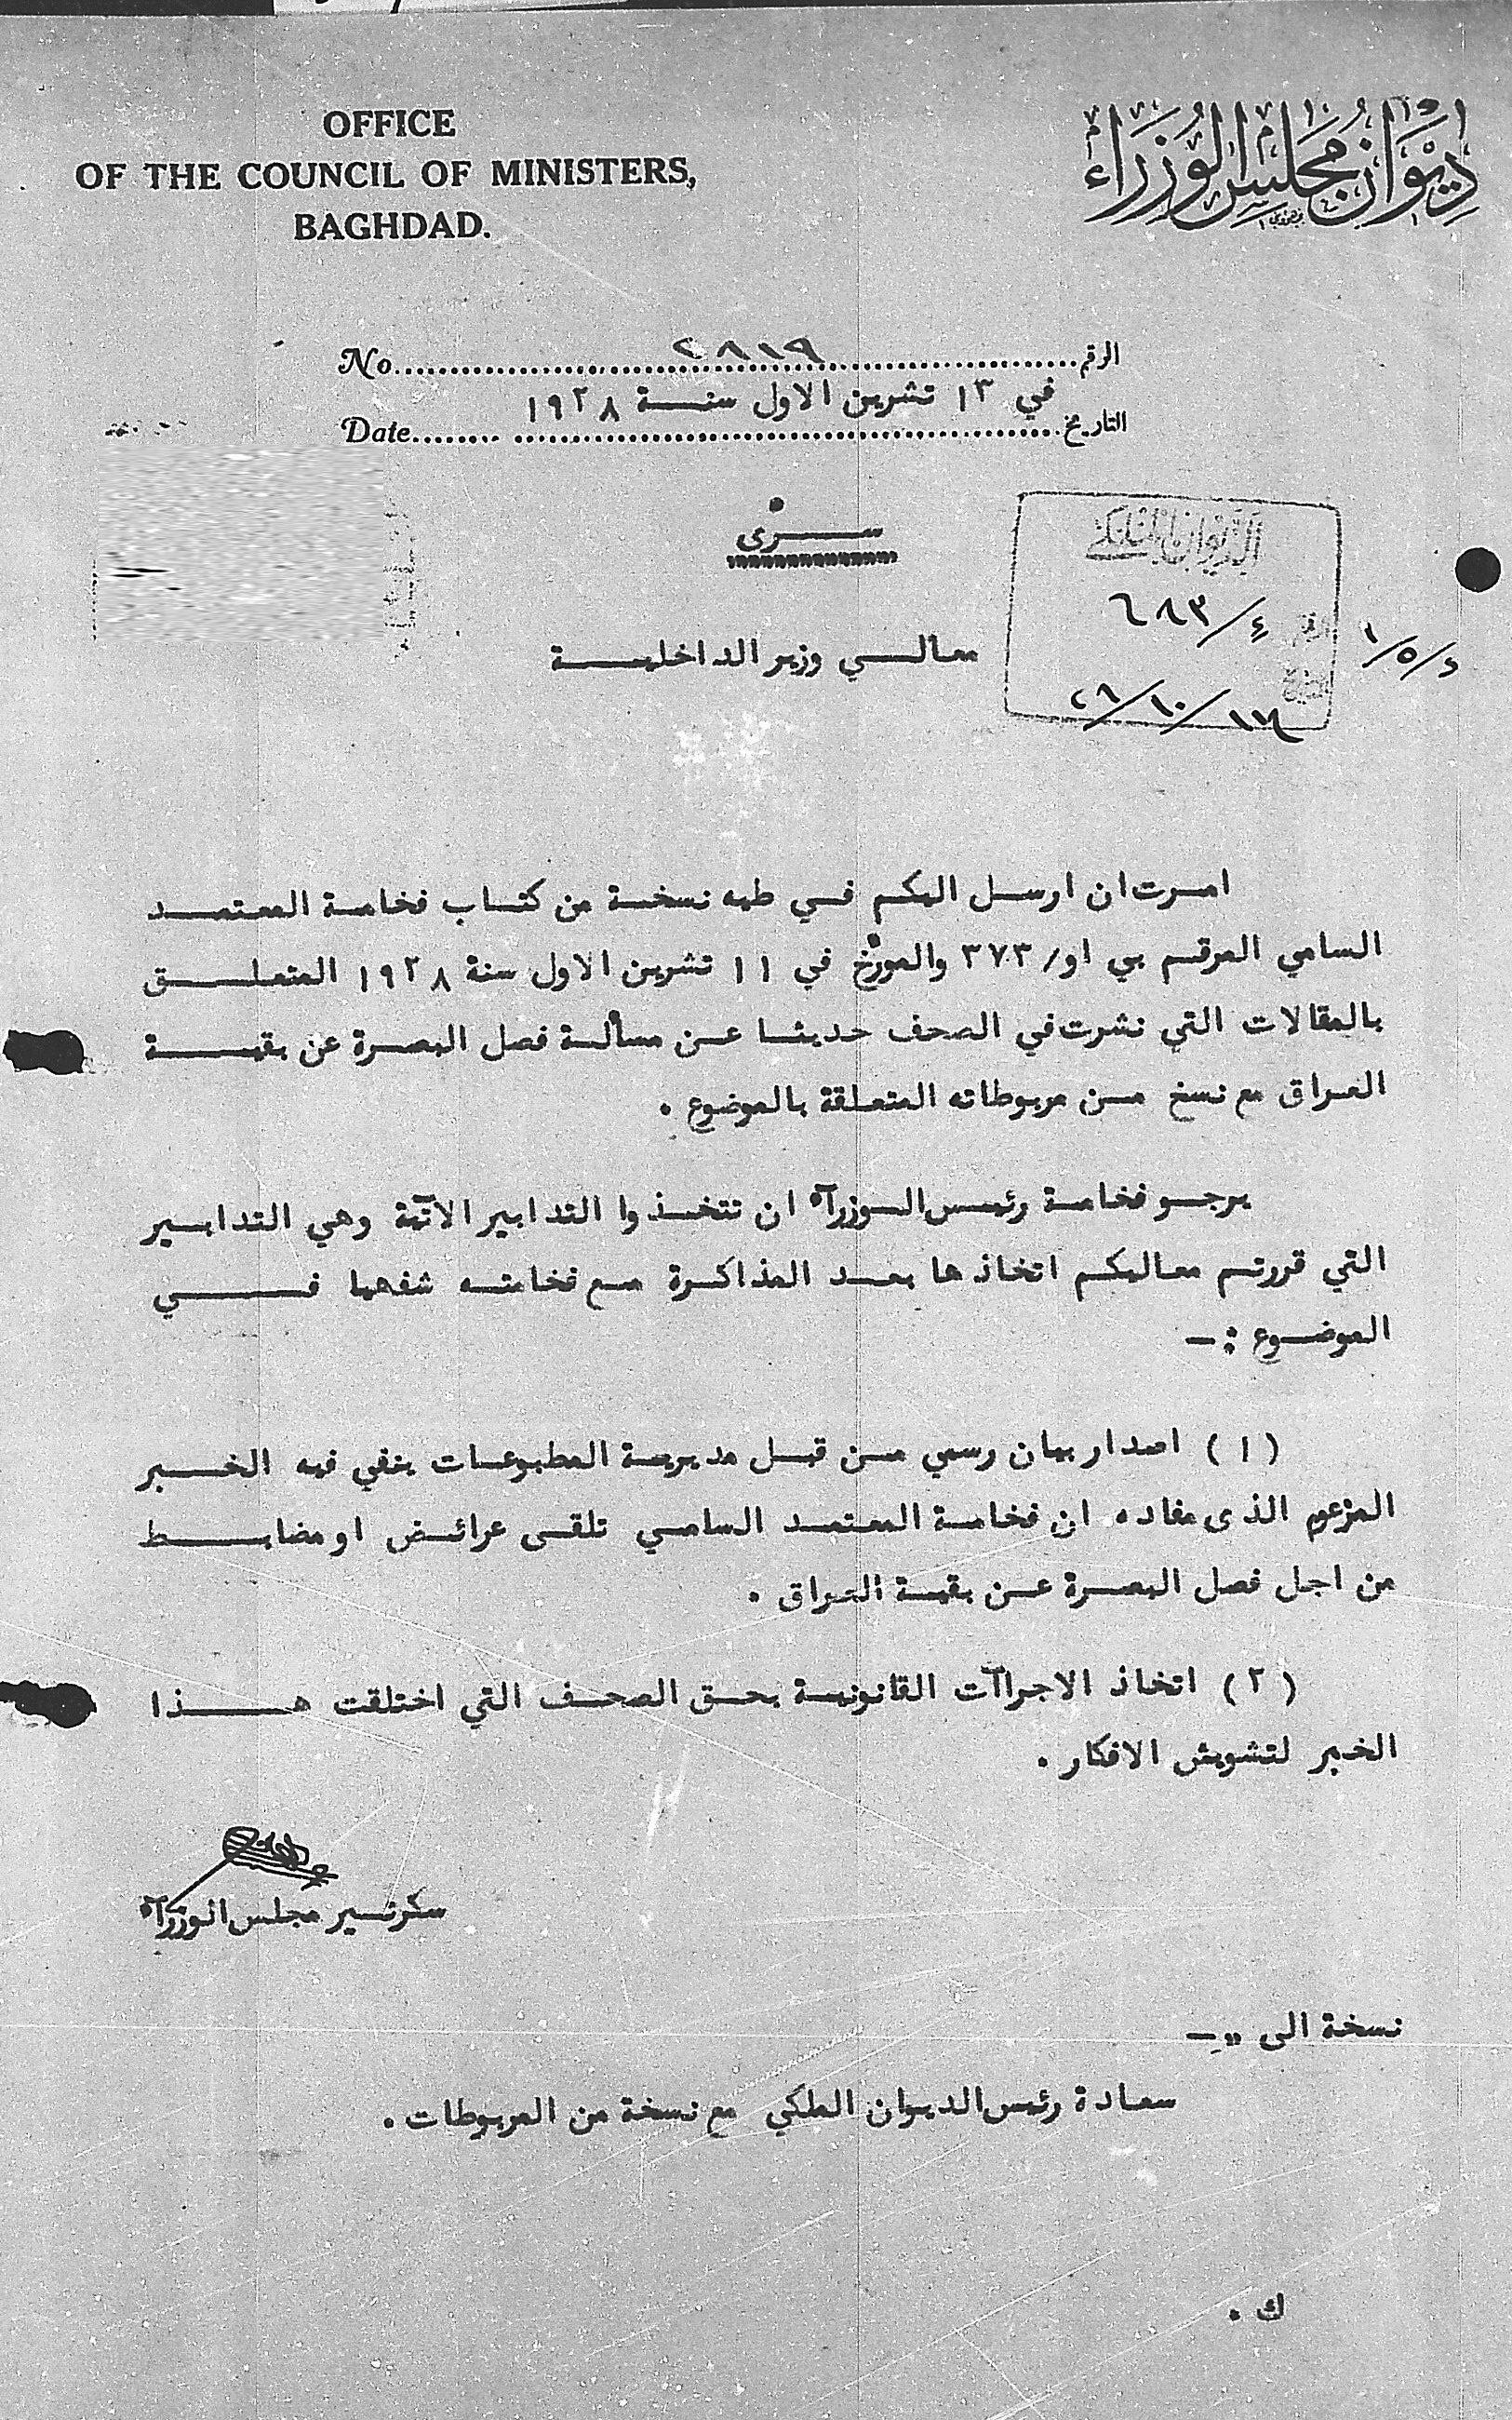 OFFICE
OF THE COUNCIL OF MINISTERS,
BAGHDAD.
ديوان مجلس الوزراء
No. ٢٨١٩ الرقم
في ١٣ تشرين الاول سنة ١٩٢٨
Date التاريخ
سري
الديوان الملكي
معالي وزير الداخلية
امرت ان ارسل اليكم في طيه نسخة من كتاب فخامة المعتمد
السامي المرقم بي او/٣٧٣ والمؤرخ في ١١ تشرين الاول سنة ١٩٢٨ المتعلق
بالمقالات التي نشرت في الصحف حديثا عن مسألة فصل البصرة عن بقية
العراق مع نسخ من مربوطاته المتعلقة بالموضوع .
يرجو فخامة رئيس الوزرآء ان تتخذوا التدابير الآتية وهي التدابير
التي قررتم معاليكم اتخاذها بعد المذاكرة مع فخامته شفهيا في
الموضوع :-
(١) اصدار بيان رسمي من قبل مديرية المطبوعات ينفي فيه الخبر
المزعوم الذى مفاده ان فخامة المعتمد السامي تلقى عرائض او مضابط
من اجل فصل البصرة عن بقية العراق .
(٢) اتخاذ الاجراآت القانونية بحق الصحف التي اختلقت هذا
الخبر لتشويش الافكار .
سكرتير مجلس الوزرآء
نسخة الى :-
سعادة رئيس الديوان الملكي مع نسخة من المربوطات .
ك .